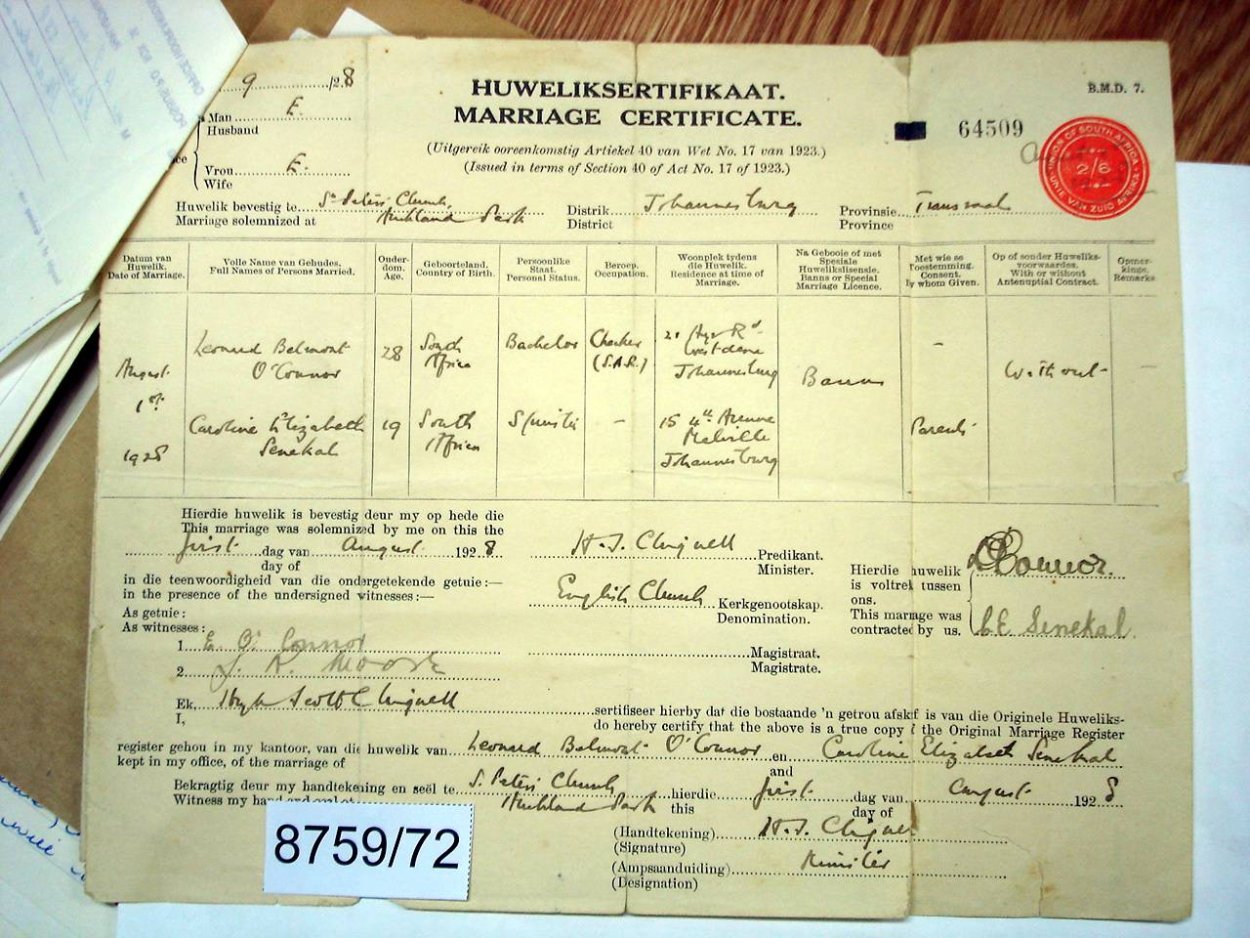 HUWELIKSERTIFIKAAT.
MARRIAGE CERTIFICATE.
B.M.D. 7.
9 /28
Man E.
Husband
Vrou E.
Wife
(Uitgereik ooreenkomstig Artiekel 40 van Wet No. 17 van 1923.)
(Issued in terms of Section 40 of Act No. 17 of 1923.)
64509
UNION OF SOUTH AFRICA
2/6
UNIE VAN ZUID AFRIKA
Huwelik bevestig te St Peter's Church, Distrik Johannesburg Provinsie Transvaal
Marriage solemnized at Auckland Park District Province
Datum van Huwelik. Date of Marriage.
Volle Name van Gehudes. Full Names of Persons Married.
Ouderdom. Age.
Geboorteland. Country of Birth.
Persoonlike Staat. Personal Status.
Beroep. Occupation.
Woonplek tydens die Huwelik. Residence at time of Marriage.
Na Gebooie of met Spesiale Huwelikslisensie. Banns or Special Marriage Licence.
Met wie se Toestemming. Consent, By whom Given.
Op of sonder Huweliksvoorwaarden. With or without Antenuptial Contract.
Opmerkinge. Remarks
August 1st 1928
Leonard Belmont O'Connor 28 South Africa Bachelor Checker (S.A.R.) 21 Rd Westdene Johannesburg Banns - Without -
Caroline Elizabeth Senekal 19 South Africa Spinster - 15 4th Avenue Melville Johannesburg Parents
Hierdie huwelik is bevestig deur my op hede die
This marriage was solemnized by me on this the
first dag van August 1928
day of
in die teenwoordigheid van die ondergetekende getuie:—
in the presence of the undersigned witnesses:—
As getuie:
As witnesses:
1 E. O'Connor
2 J. R. Moore
H. S. Chignell Predikant.
Minister.
English Church Kerkgenootskap.
Denomination.
Magistraat.
Magistrate.
Hierdie huwelik is voltrek tussen ons.
This marriage was contracted by us.
O'Connor.
C.E. Senekal.
Ek, Hugh Scott Chignell sertifiseer hierby dat die bostaande 'n getrou afskrif is van die Originele Huweliks-
I, do hereby certify that the above is a true copy the Original Marriage Register
register gehou in my kantoor, van die huwelik van Leonard Belmont O'Connor en Caroline Elizabeth Senekal
kept in my office, of the marriage of and
Bekragtig deur my handtekening en seël te S. Peter's Church hierdie first dag van August 1928
Witness my hand Auckland Park this day of
(Handtekening) H. S. Chignell
(Signature)
(Ampsaanduiding) Minister
(Designation)
8759/72